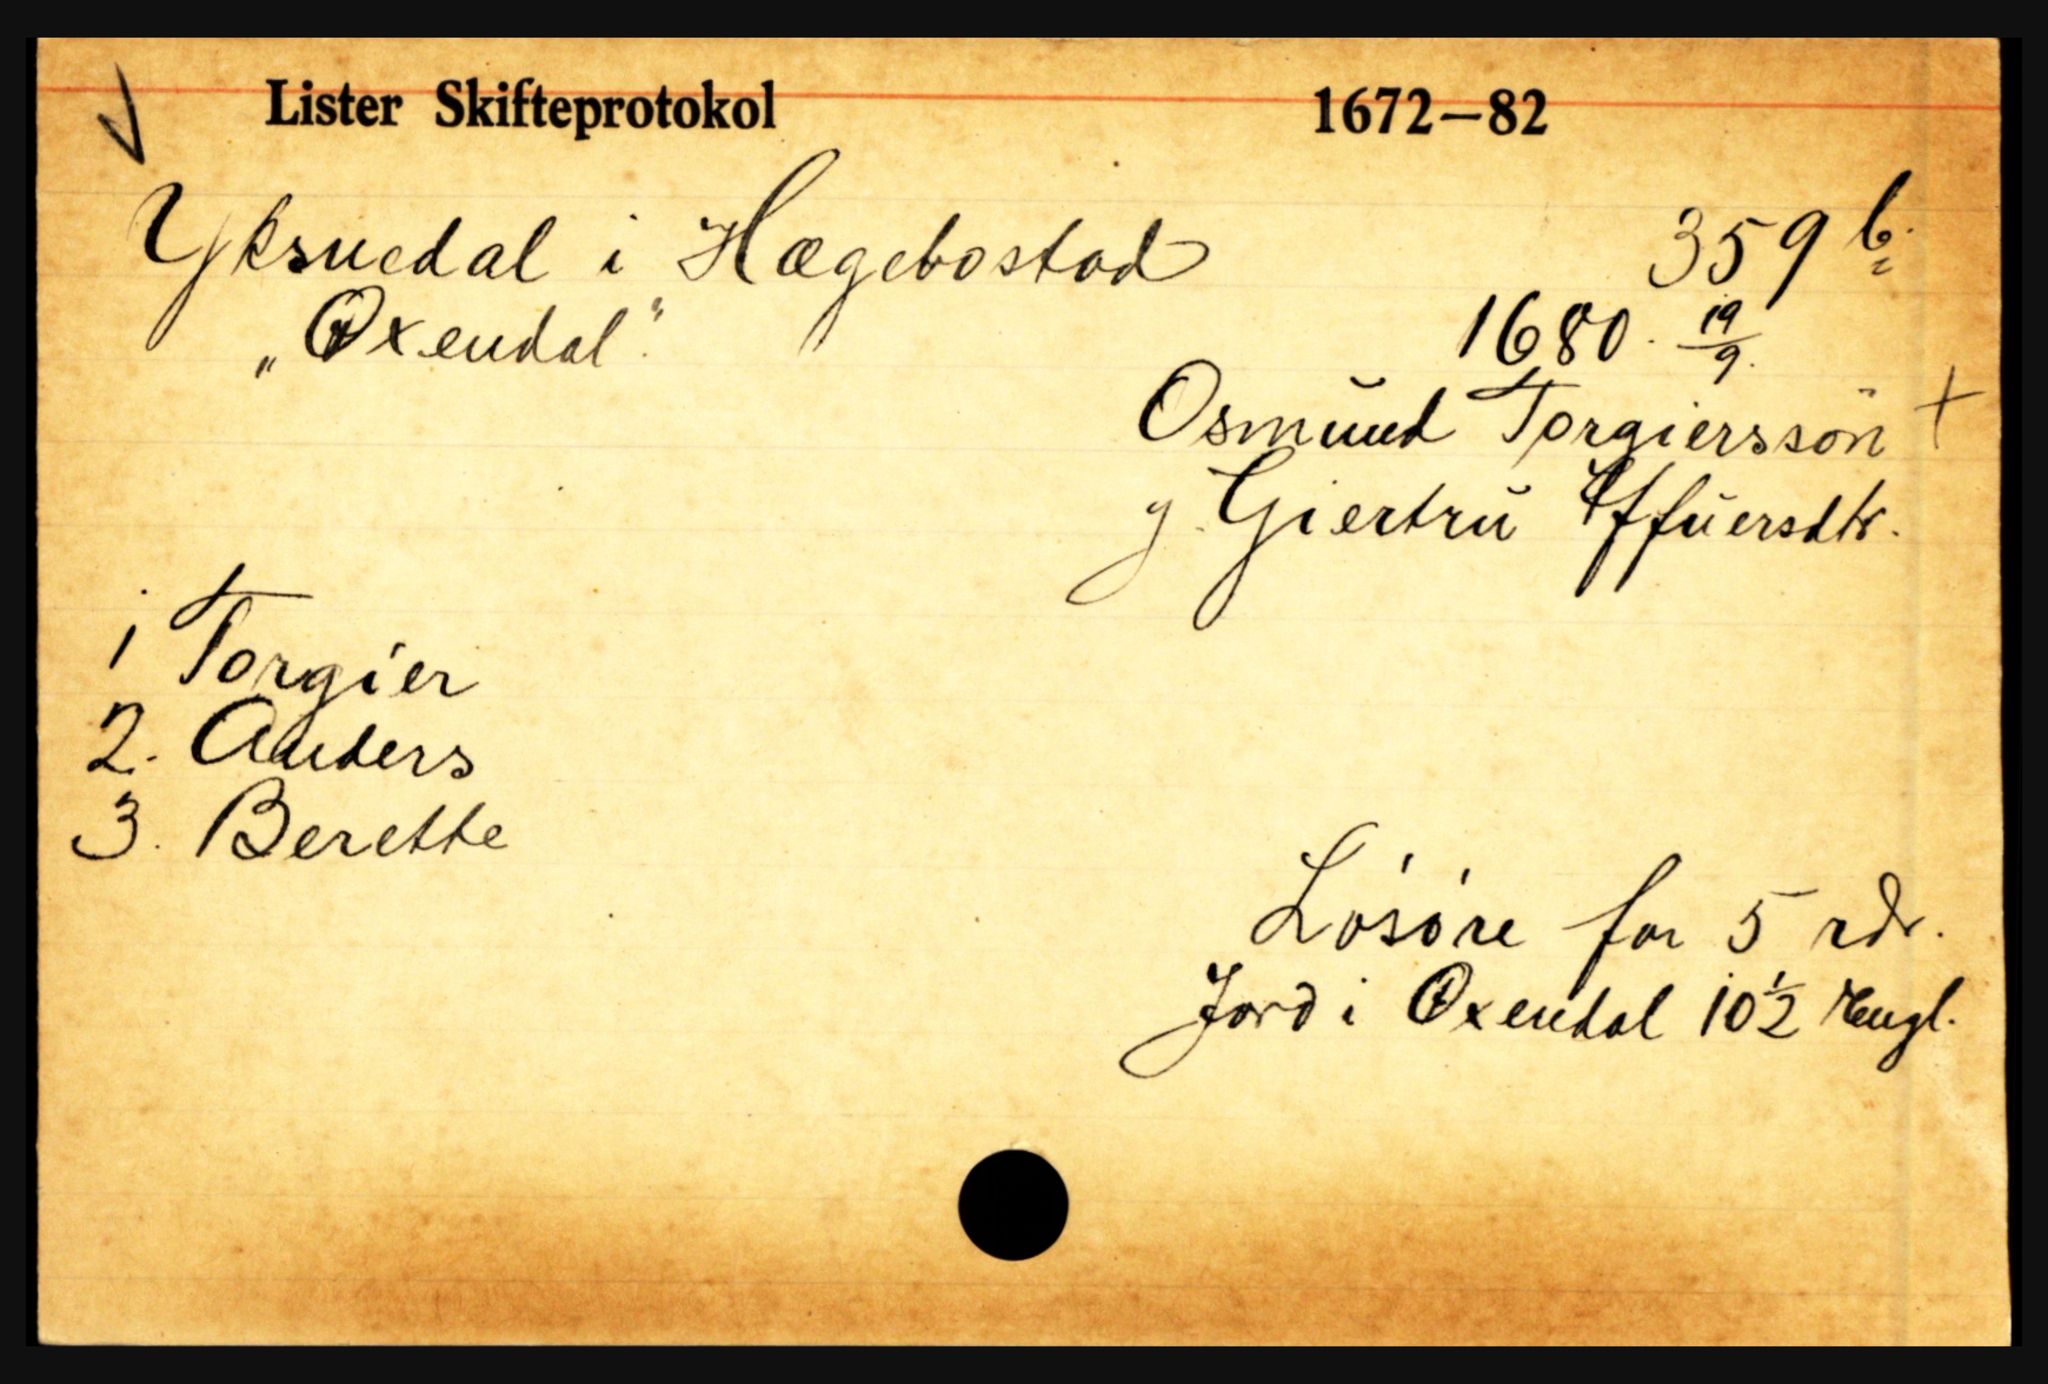 Lister Skifteprotokol 1672–82
Yksnedal i Hægebostad 359 b.
„Øxendal" 1680. 19/9.
Osmŭnd Torgierssön +
g. Giertrŭ Iffŭersdtr.
1 Torgier
2. Anders
3. Berette
Lösöre for 5 rdr.
Jord i Øxendal 10½ engl.